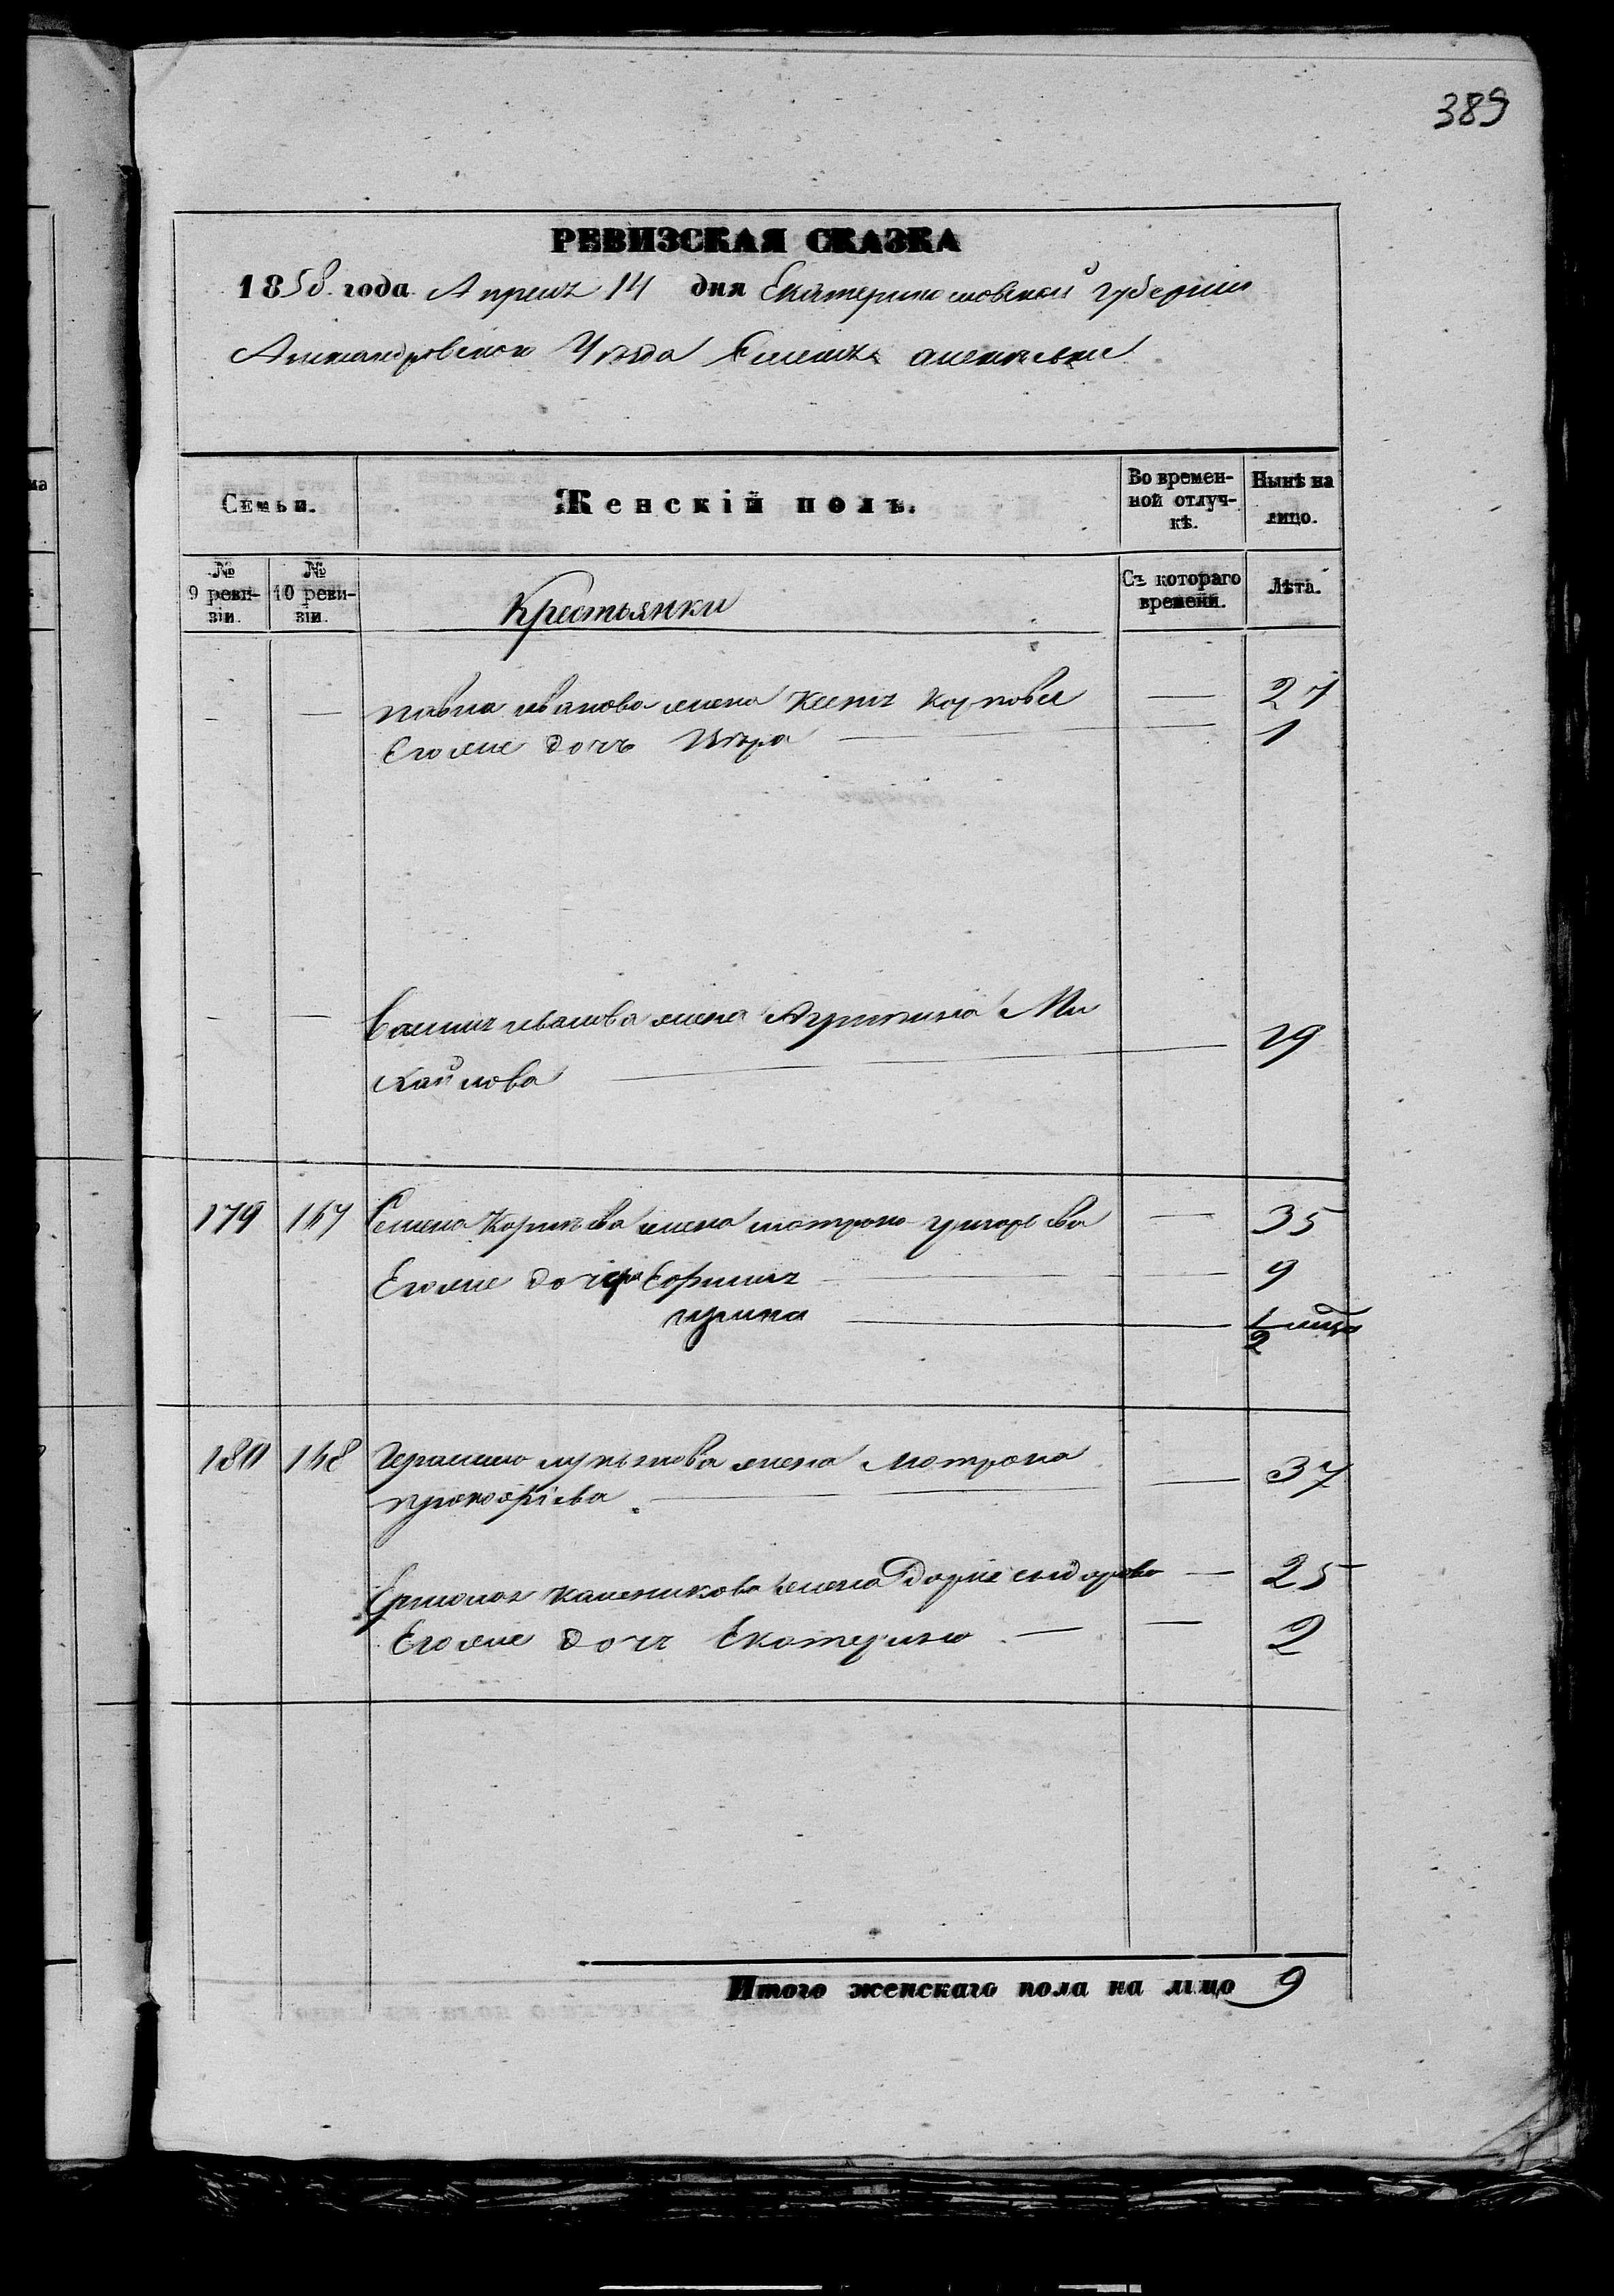 389
РЕВИЗСКАЯ СКАЗКА
1858 года Апреля 14 дня Екатеринославской губернии
Александровского Уезда
Семьи.
Женскій полъ.
Во времен-
ной отлуч-
кѣ.
Нынѣ на
лицо.
№
9 реви-
зіи.
№
10 реви-
зіи.
Крестьянки
Съ котораго
времени.
Лѣта.
— — павла иванова жена Ксенія Карпова — 27
Его же дочь — 1
— — иванова жена Ми
хайлова — 29
179 167 Семена жена мотрона григорьева — 35
Его же дочери — 9
ирина — 1/2 года
180 168 Герасима жена Мотрона
прокофіева — 37
Ермолая жена Дарія сидорова — 25
Его же дочь Екатерина — — 2
Итого женскаго пола на лицо 9